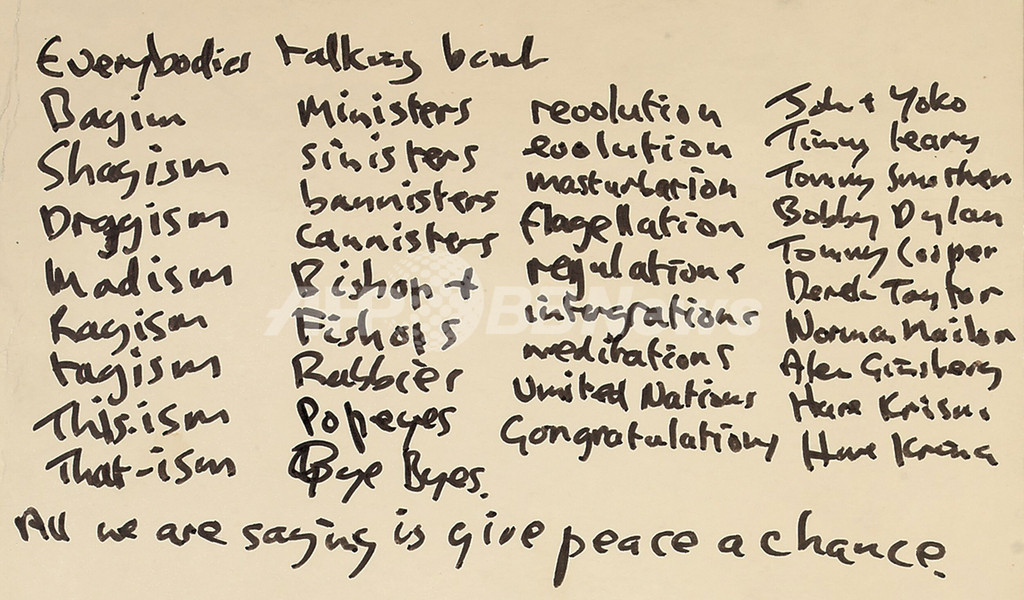 Everybodies talking bout
Bagism
Shagism
Draggism
Madism
Ragism
tagism
This.ism
That-ism
Ministers
sinisters
bannisters
cannisters
Bishop +
Fishops
Rabbier
Popeyes
Bye Byes.
revolution
evolution
masturbation
flagellation
regulations
intergrations
meditations
United Nations
Congratulations
John + Yoko
Timmy Leary
Tommy Smothen
Bobby Dylan
Tommy Cooper
Derek Taylor
Norman Mailor
Alen Ginsberg
Hare Krisna
Hare Krisna
All we are saying is give peace a chance.
AFP BBNews